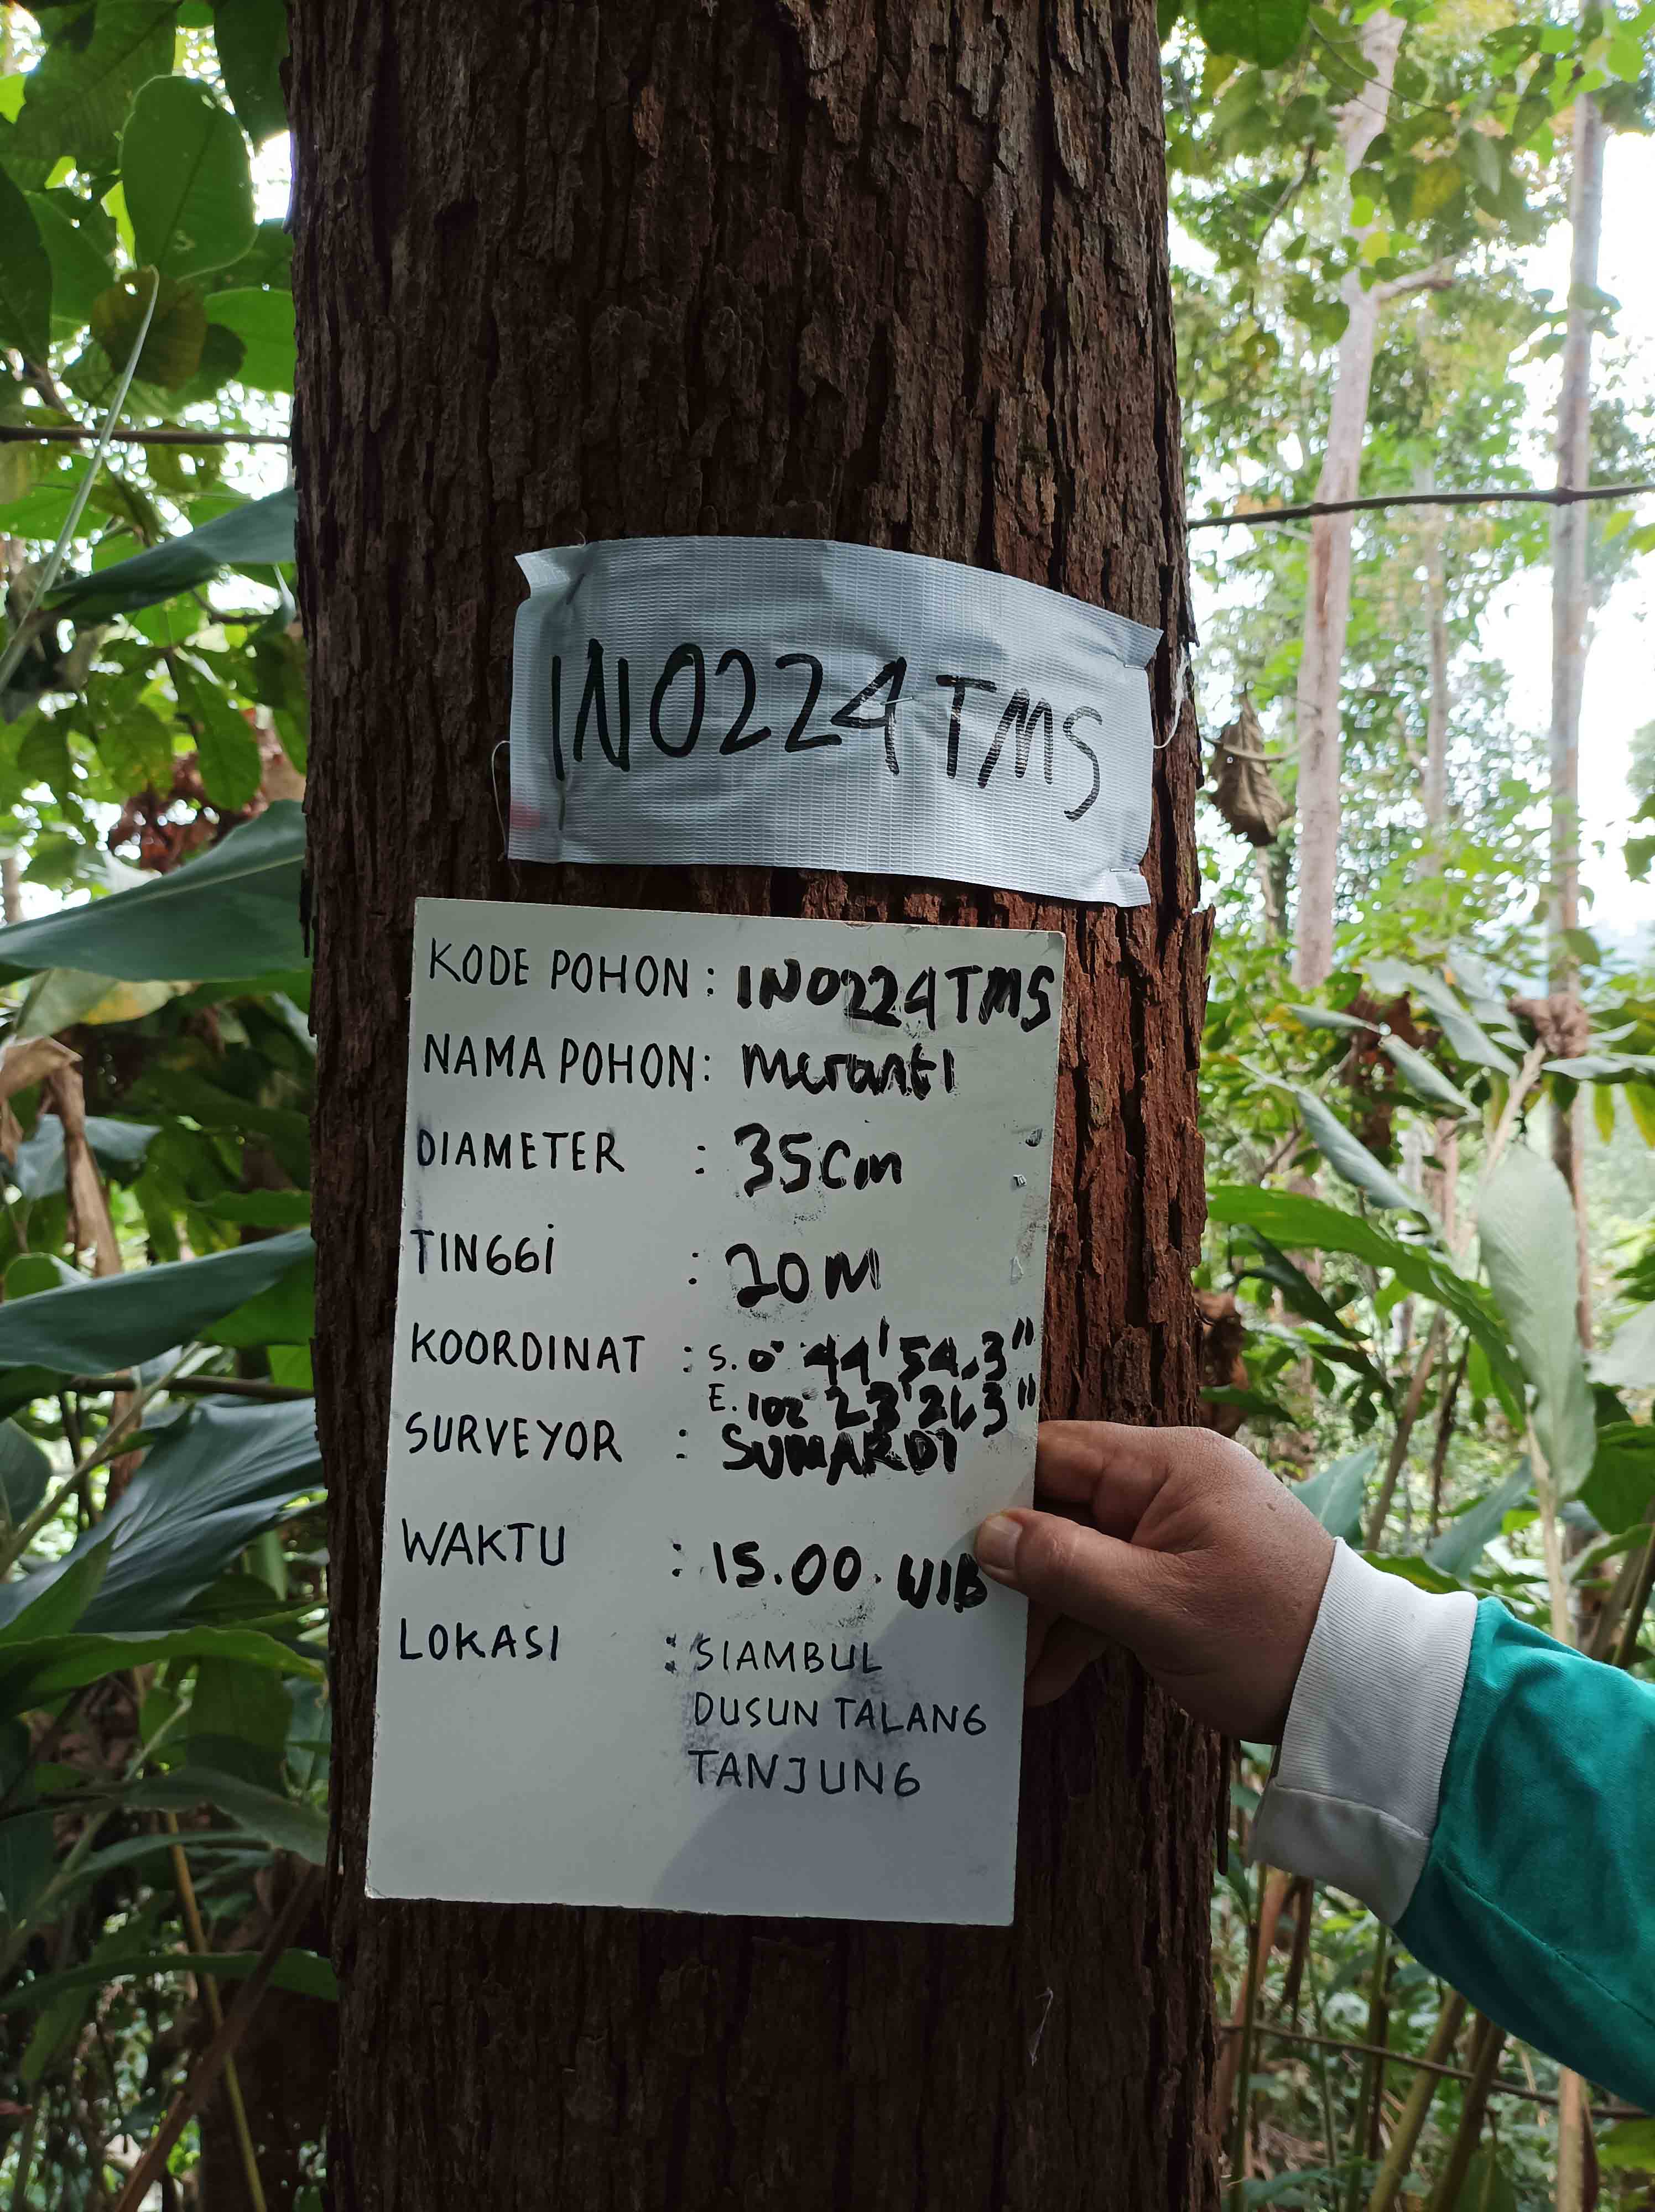 IN0224TMS
KODE POHON : IN0224TMS
NAMA POHON : Meranti
DIAMETER : 35Cm
TINGGI : 20M
KOORDINAT : S. 0° 44' 54,3"
E. 102° 23' 21,3"
SURVEYOR : SUMARDI
WAKTU : 15.00. WIB
LOKASI : SIAMBUL
DUSUN TALANG
TANJUNG